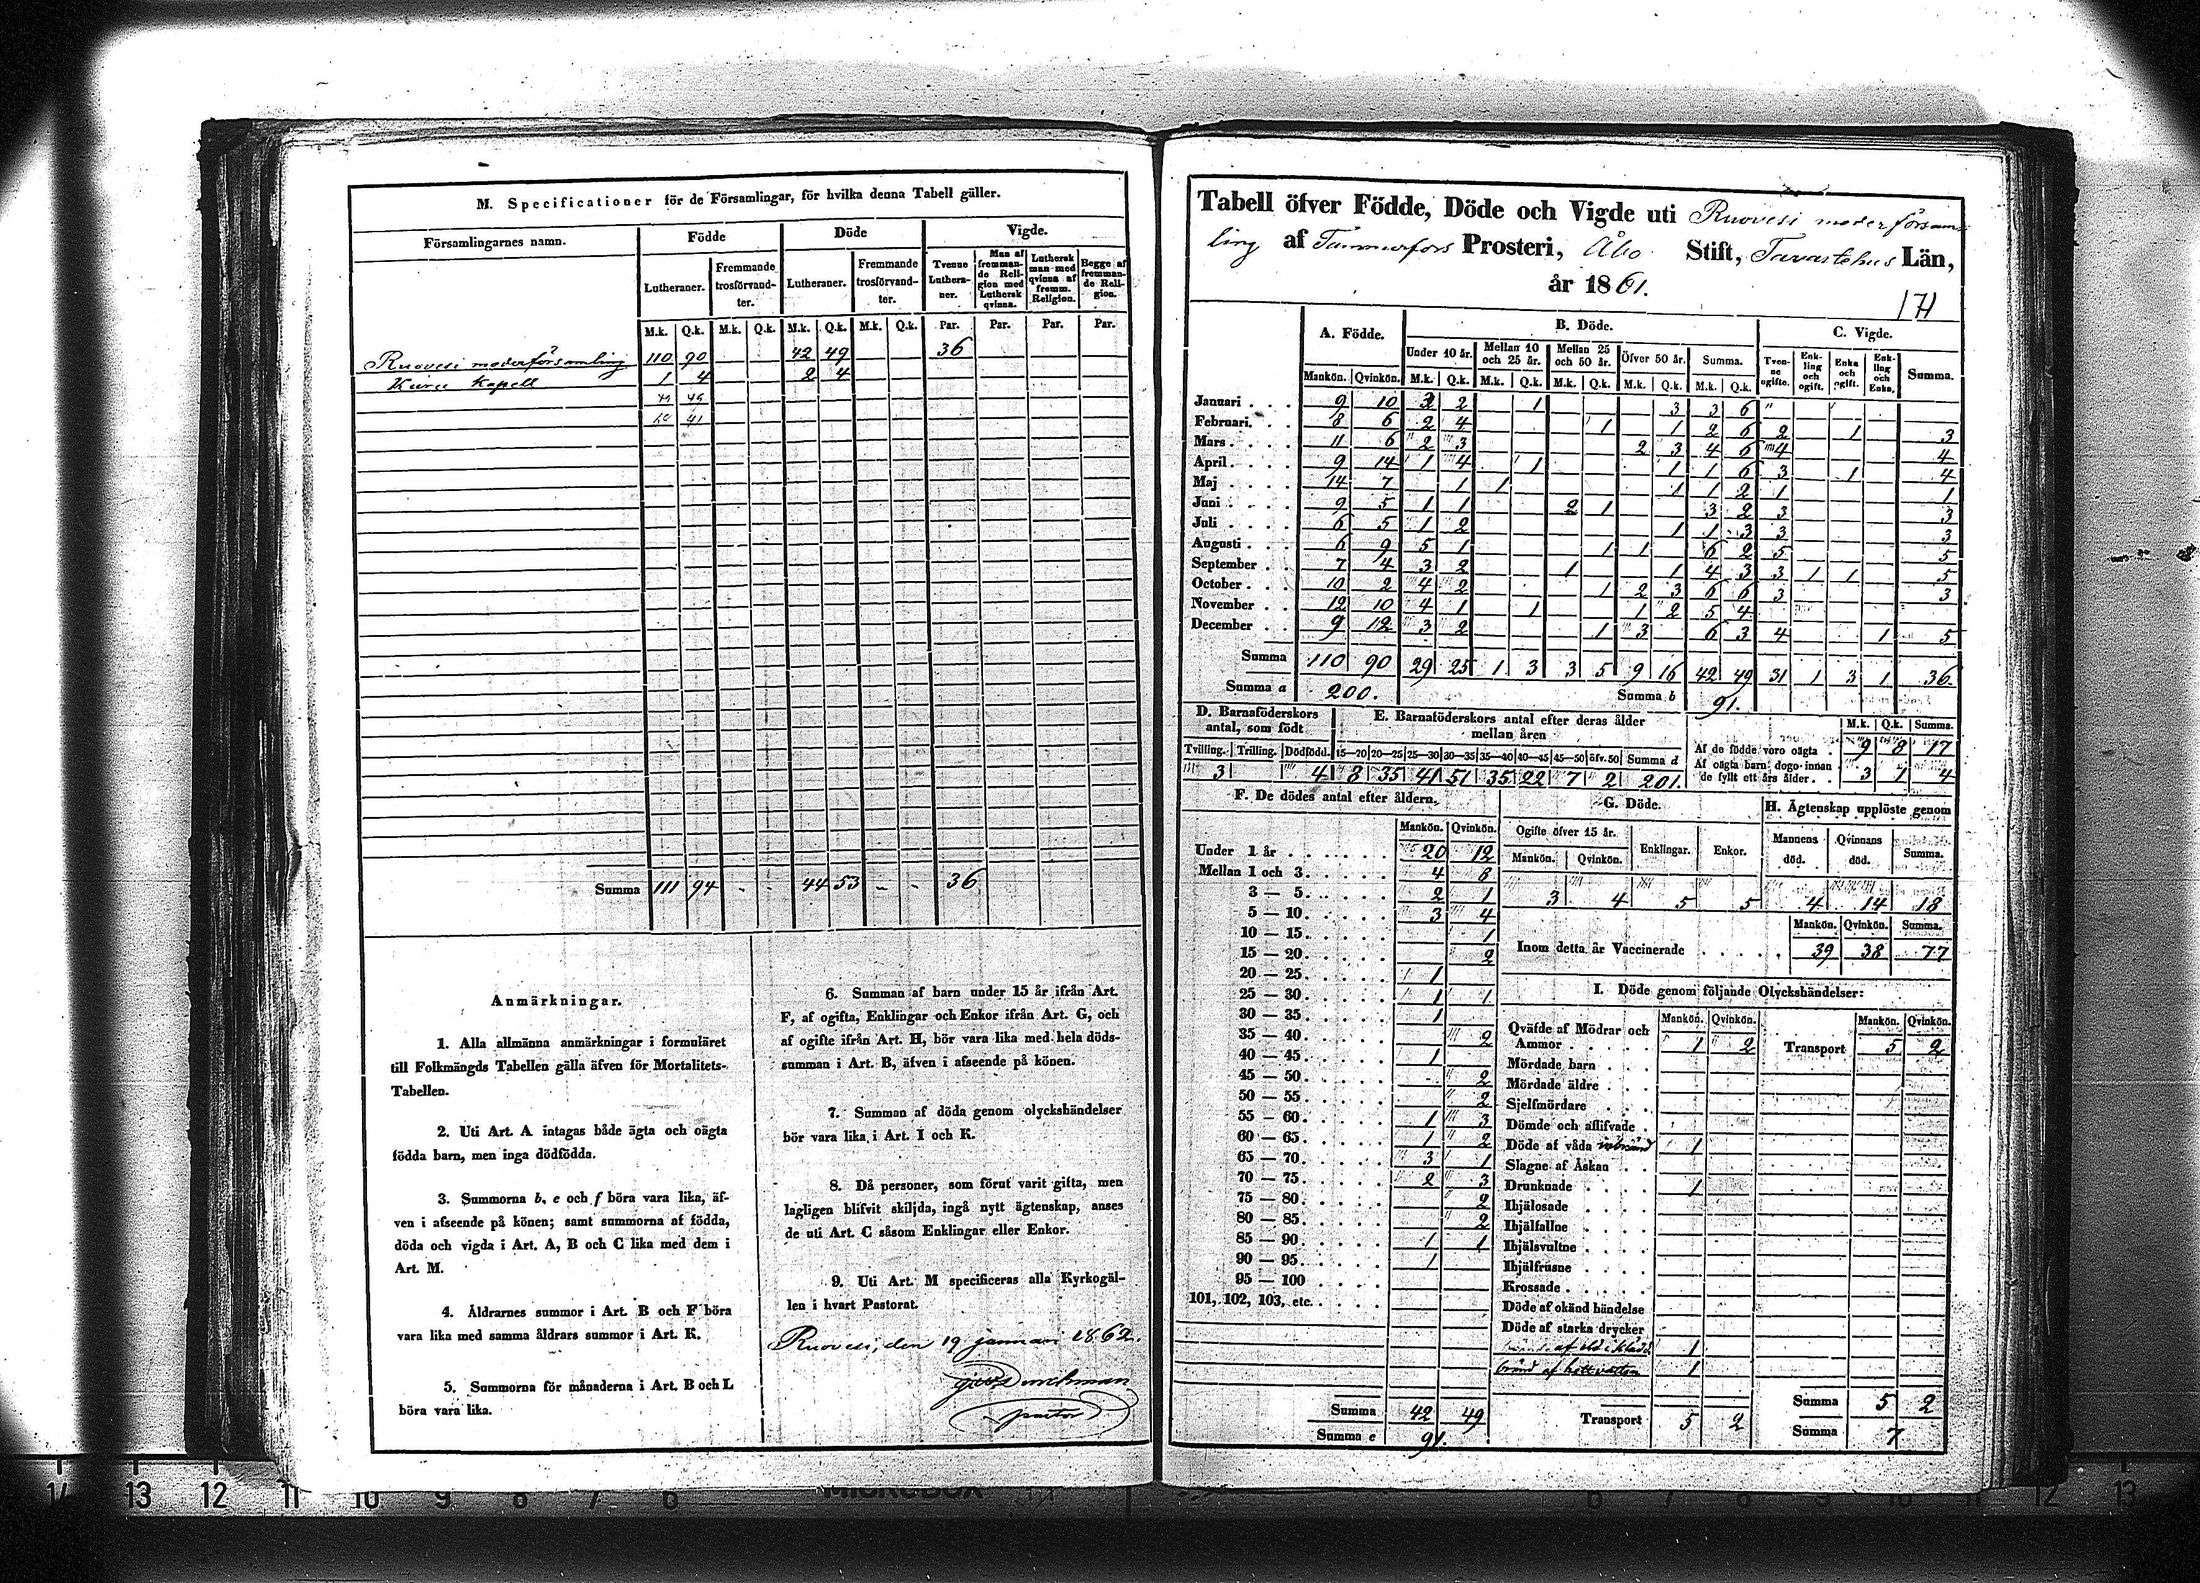 M. Specificationer för de Församlingar, för hvilka denna Tabell gäller.
Församlingarnes namn. Födde Döde Vigde.
Lutheraner. Fremmande trosförvandter. Lutheraner. Fremmande trosförvandter. Tvenne Lutheraner. Man af fremmande Religion med Luthersk qvinna. Luthersk man med qvinna af fremm. Religion. Begge af fremmande Religion.
M.k. Q.k. M.k. Q.k. M.k. Q.k. M.k. Q.k. Par. Par. Par. Par.
Ruovesi moderförsamling 110 90 42 49 36
Kuru Kapell 1 4 2 4
Summa 111 94 - - 44 53 - - 36
Anmärkningar.
1. Alla allmänna anmärkningar i formuläret
till Folkmängds Tabellen gälla äfven för Mortalitets-
Tabellen.
2. Uti Art. A intagas både ägta och oägta
födda barn, men inga dödfödda.
3. Summorna b, e och f böra vara lika, äf-
ven i afseende på könen; samt summorna af födda,
döda och vigda i Art. A, B och C lika med dem i
Art. M.
4. Åldrarnes summor i Art. B och F böra
vara lika med samma åldrars summor i Art. K.
5. Summorna för månaderna i Art. B och L
böra vara lika.
6. Summan af barn under 15 år ifrån Art.
F, af ogifta, Enklingar och Enkor ifrån Art. G, och
af ogifte ifrån Art. H, bör vara lika med hela döds-
summan i Art. B, äfven i afseende på könen.
7. Summan af döda genom olyckshändelser
bör vara lika i Art. I och K.
8. Då personer, som förut varit gifta, men
lagligen blifvit skiljda, ingå nytt ägtenskap, anses
de uti Art. C såsom Enklingar eller Enkor.
9. Uti Art. M specificeras alla Kyrkogäl-
len i hvart Pastorat.
Ruovesi, den 19 januari 1862.
pastor
Tabell öfver Födde, Döde och Vigde uti Ruovesi moderförsam
ling af Tammerfors Prosteri, Åbo Stift, Tavastehus Län,
år 1861.
171
A. Födde. B. Döde. C. Vigde.
Under 10 år. Mellan 10 och 25 år. Mellan 25 och 50 år. Öfver 50 år. Summa. Tvenne ogifte. Enkling och ogift. Enka och ogift. Enkling och Enka. Summa.
Mankön. Qvinkön. M.k. Q.k. M.k. Q.k. M.k. Q.k. M.k. Q.k. M.k. Q.k.
Januari 9 10 3 2 1 3 3 6 "
Februari. 8 6 2 4 1 1 2 6 2 1 3
Mars 11 6 2 3 2 3 4 6 4 4
April 9 14 1 4 1 1 1 6 3 1 4
Maj 14 7 1 1 1 1 2 1 1
Juni 9 5 1 1 2 1 3 2 3 3
Juli 6 5 1 2 1 1 3 3 3
Augusti 6 9 5 1 1 1 6 2 5 5
September 7 4 3 2 1 1 4 3 3 1 1 5
October 10 2 4 2 1 2 3 6 6 3 3
November 12 10 4 1 1 1 2 5 4
December 9 12 3 2 1 3 6 3 4 1 5
Summa 110 90 29 25 1 3 3 5 9 16 42 49 31 1 3 1 36.
Summa a 200. Summa b 91.
D. Barnaföderskors antal, som födt E. Barnaföderskors antal efter deras ålder mellan åren
M.k. Q.k. Summa.
Tvilling. Trilling. Dödfödd. 15—20 20—25 25—30 30—35 35—40 40—45 45—50 öfv. 50 Summa d
3 4 8 35 41 51 35 22 7 2 201.
Af de födde voro oägta 9 8 17
Af oägta barn dogo innan
de fyllt ett års ålder 3 1 4
F. De dödes antal efter åldern.
Mankön. Qvinkön.
Under 1 år 20 12
Mellan 1 och 3 4 8
3 — 5 2 1
5 — 10 3 4
10 — 15 1
15 — 20 2
20 — 25 1
25 — 30 1 1
30 — 35 1
35 — 40 2
40 — 45 1
45 — 50 2
50 — 55 2
55 — 60 1 3
60 — 65 1 2
65 — 70 3 1
70 — 75 2 3
75 — 80 2
80 — 85 2
85 — 90 1 1
90 — 95 1
95 — 100
101, 102, 103, etc.
Summa 42 49
Summa e 91.
G. Döde.
Ogifte öfver 15 år. Enklingar. Enkor.
Mankön. Qvinkön.
3 4 5 5
H. Ägtenskap upplöste genom
Mannens död. Qvinnans död. Summa.
4 14 18
Mankön. Qvinkön. Summa.
Inom detta år Vaccinerade 39 38 77
I. Döde genom följande Olyckshändelser:
Mankön. Qvinkön. Mankön. Qvinkön.
Qväfde af Mödrar och
Ammor 1 2 Transport 5 2
Mördade barn
Mördade äldre
Sjelfmördare
Dömde och aflifvade
Döde af våda 1
Slagne af Åskan
Drunknade 1
Ihjälosade
Ihjälfallne
Ihjälsvultne
Ihjälfrusne
Krossade
Döde af okänd händelse
Döde af starka drycker
af eld i kläd. 1
bränd af hett vatten 1
Transport 5 2
Summa 5 2
Summa 7
14 13 12 11 10 9 8 7 6
6 7 8 9 10 11 12 13